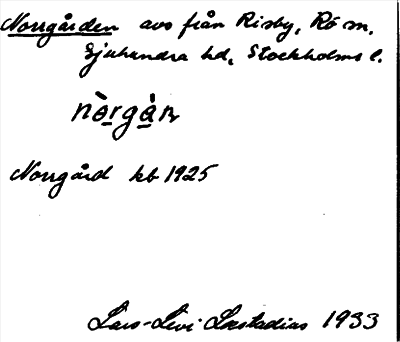 Norrgården avs från Risby, Rö sn,
Sjuhundra hd, Stockholms l.
nòrgàṇ
Norrgård kb 1925
Lars-Levi Læstadius 1933